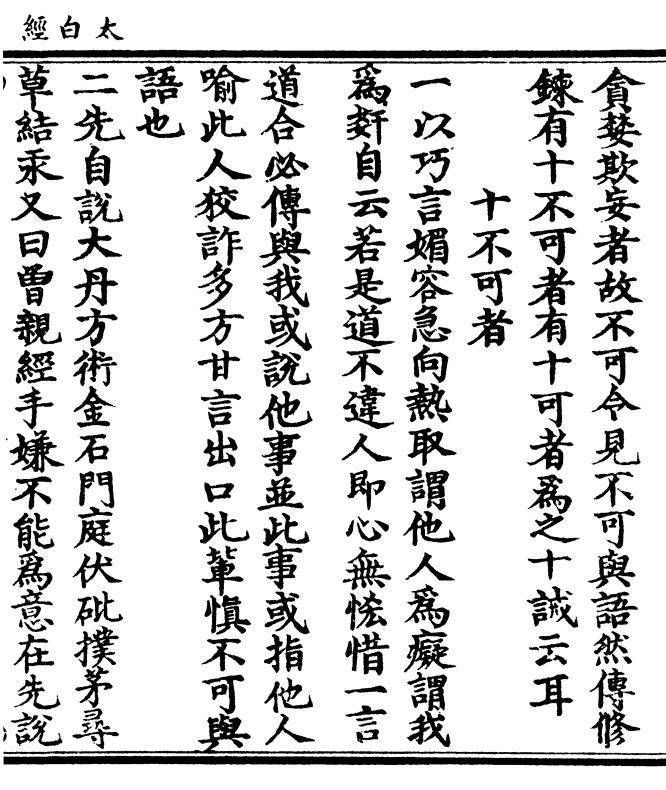 太白經
貪婪欺妄者故不可令見不可與語然傳修
鍊有十不可者有十可者爲之十誡云耳
十不可者
一以巧言媚容急向熱取謂他人爲癡謂我
爲姧自云若是道不違人即心無恡惜一言
道合必傳與我或說他事並此事或指他人
喻此人狡詐多方甘言出口此輩慎不可與
語也
二先自說大丹方術金石門庭伏砒撲茅尋
草結汞又曰曾親經手嫌不能爲意在先說